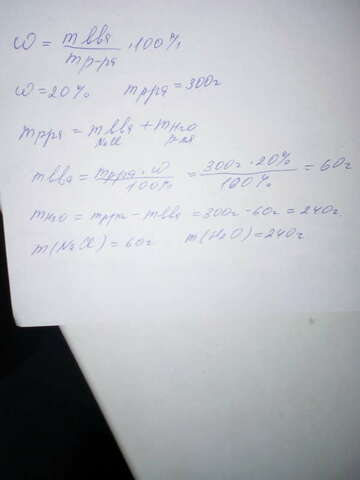 ω = m вва / m р-ра · 100%
ω = 20% m рра = 300г
m рра = m вва + m H2O
NaCl р-ля
m вва = m рра · ω / 100% = 300г · 20% / 100% = 60г
m H2O = m рра - m вва = 300г - 60г = 240г
m(NaCl) = 60г m(H2O) = 240г